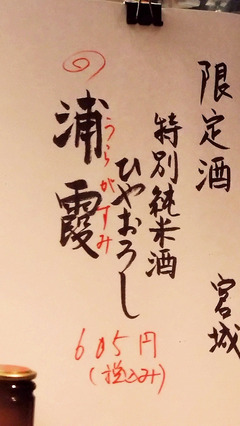 限定酒 宮城
特別純米酒
ひやおろし
浦霞
うらがすみ
605円
(税込み)